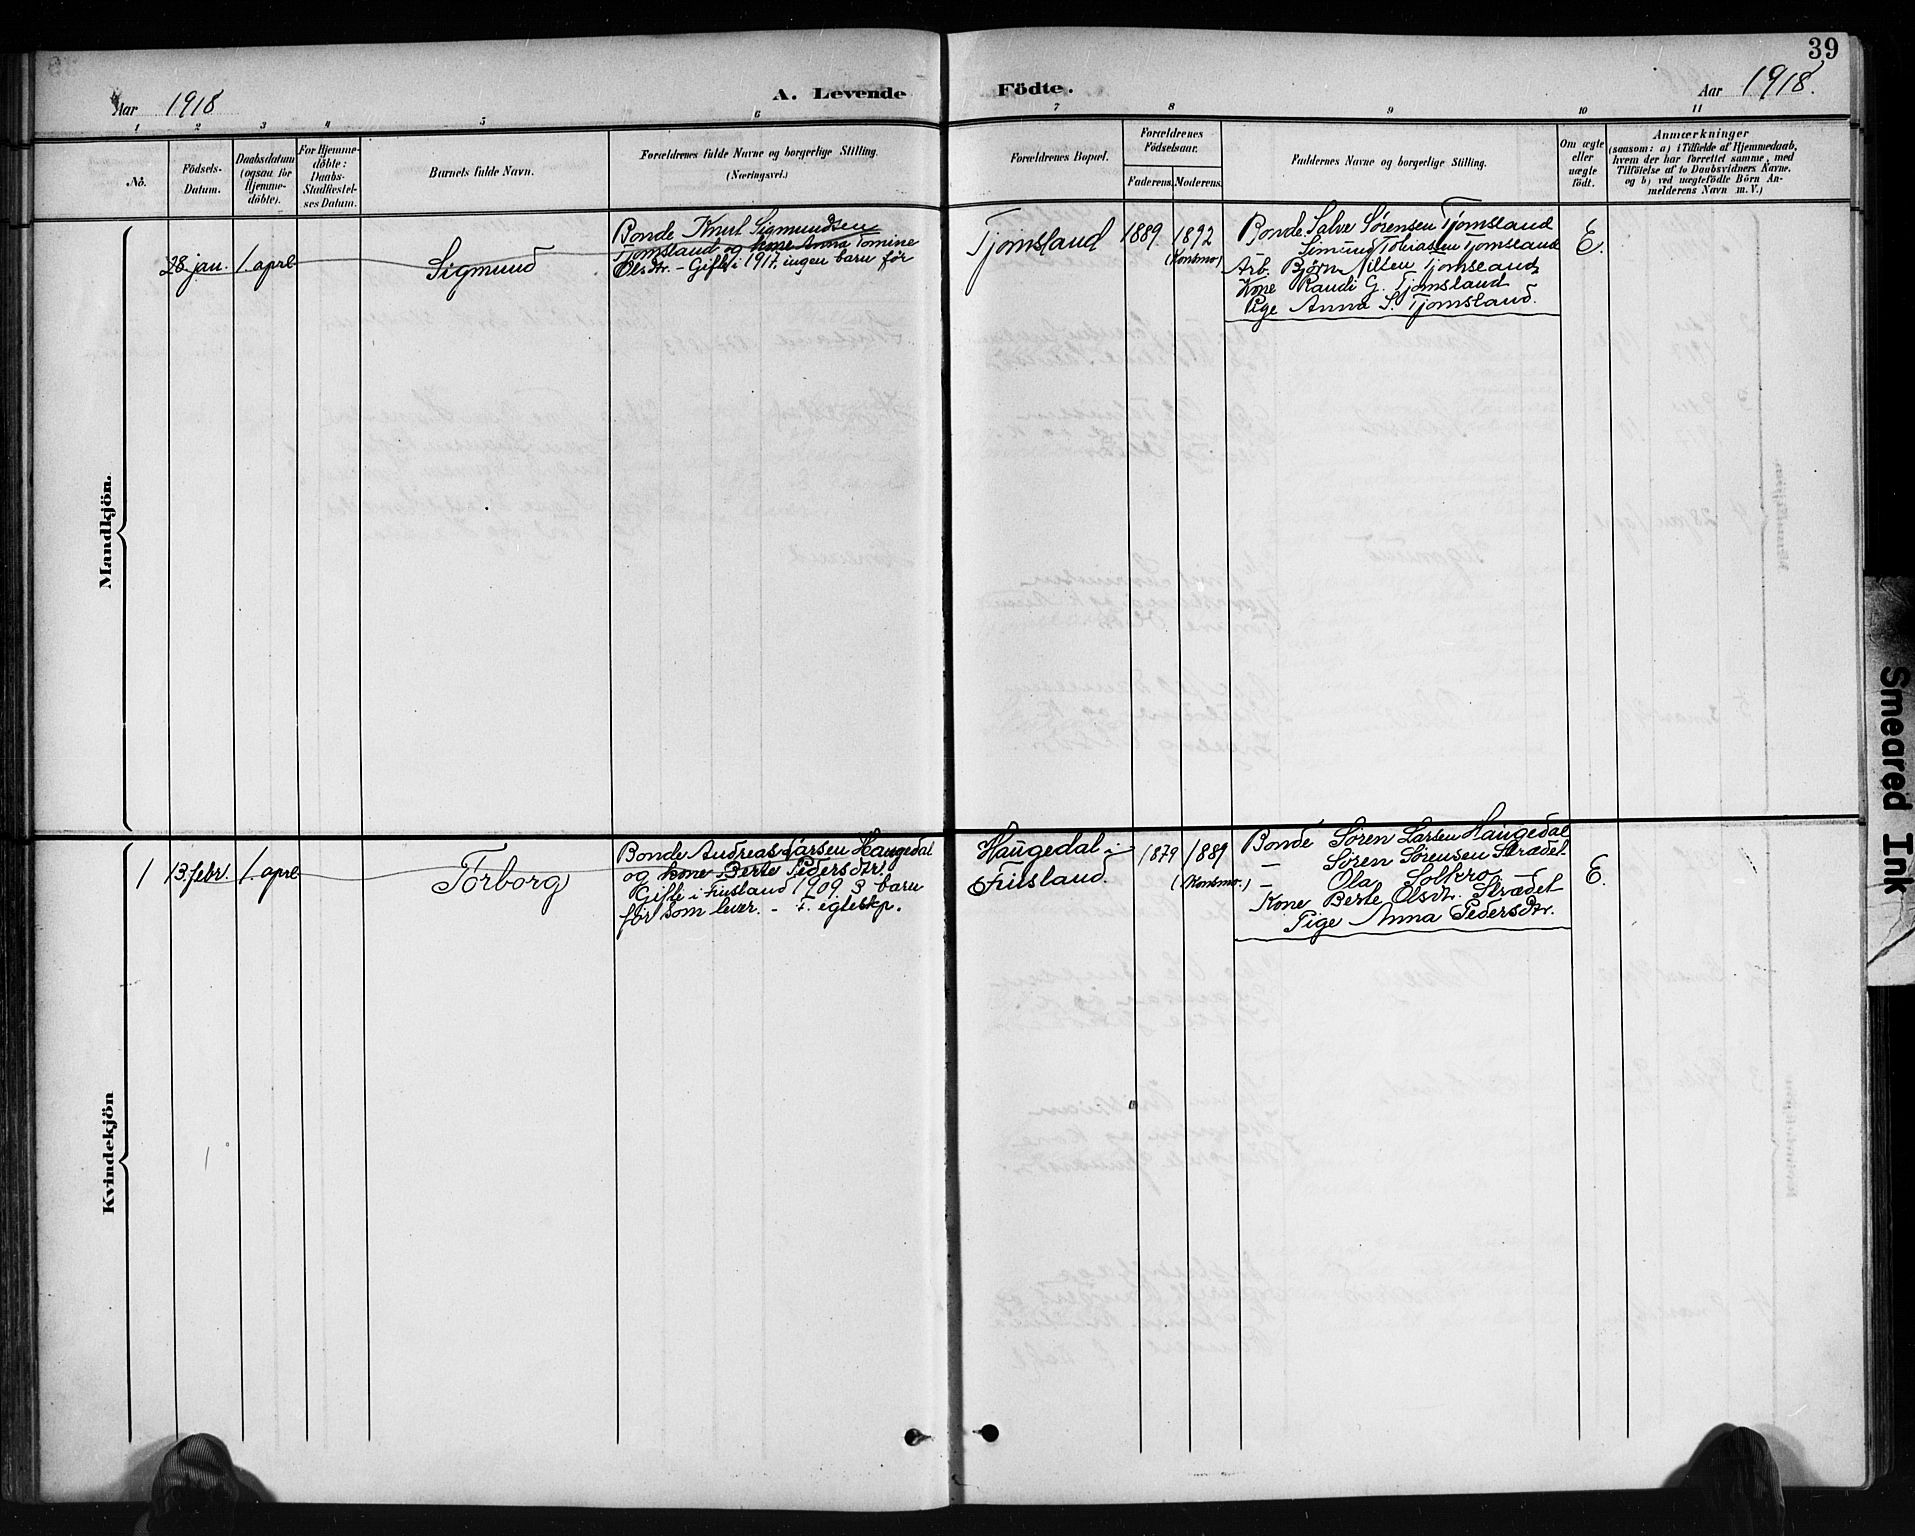 39
Aar 1918
A. Levende
Födte.
Aar 1918.
1 2 3 4 5 6 7 8 9 10 11
No.
Födsels-
Datum.
Daabsdatum
(ogsaa for
Hjemme-
döbte).
For Hjemme-
döbte:
Daabs-
Stadfæstel-
ses Datum.
Barnets fulde Navn.
Forældrenes fulde Navne og borgerlige Stilling.
(Næringsvei.)
Forældrenes Bopæl.
Forældrenes
Födselsaar.
Faderens. Moderens.
Faddernes Navne og borgerlige Stilling.
Om ægte
eller
uægte
födt.
Anmærkninger
(saasom: a) i Tilfælde af Hjemmedaab,
hvem der har forrettet samme, med
Tilföielse af to Daabsvidners Navne,
og b) ved uægtefödte Börn An-
melderens Navn m. V.)
Mandkjön.
28 jan. 1. april
Sigmund
Bonde Knut Sigmundsen
Tjomsland og kone Anna Tomine
Olsdtr. – Gift i 1917, ingen barn før
Tjomsland
1889 1892
(Konsmo)
Bonde Salve Sørensen Tjomsland
Simund Tobiassen Tjomsland
Arb. Bjørn Nilsen Tjomsland
Kone Randi G. Tjomsland
Pige Anna S. Tjomsland.
E.
Kvindekjön
1 13. febr. 1. april
Torborg
Bonde Andreas Larsen Haugedal
og kone Berte Pedersdtr.
Gifte i Finsland 1909. 3 barn
før som lever. – f. egteskp.
Haugedal
Finsland.
1879 1889
(Konsmo.)
Bonde Søren Larsen Haugedal
– Søren Sørensen Strædet
– Ola Solkro –
Kone Berte Olsdtr. Strædet
Pige Anna Pedersdtr.
E.
Smeared Ink